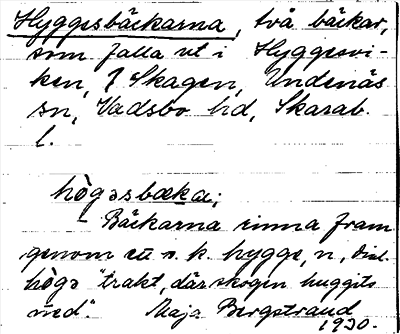 Hyggesbäckarna, två bäckar,
som falla ut i Hyggesvi-
ken, Skagen, Undenäs
sn, Vadsbo hd, Skarab.
l.
högəsbækɑ;
Bäckarna rinna fram
genom ett s. k. hygge, n, dial.
högə "trakt, där skogen huggits
ned". Maja Bergstrand
1930.